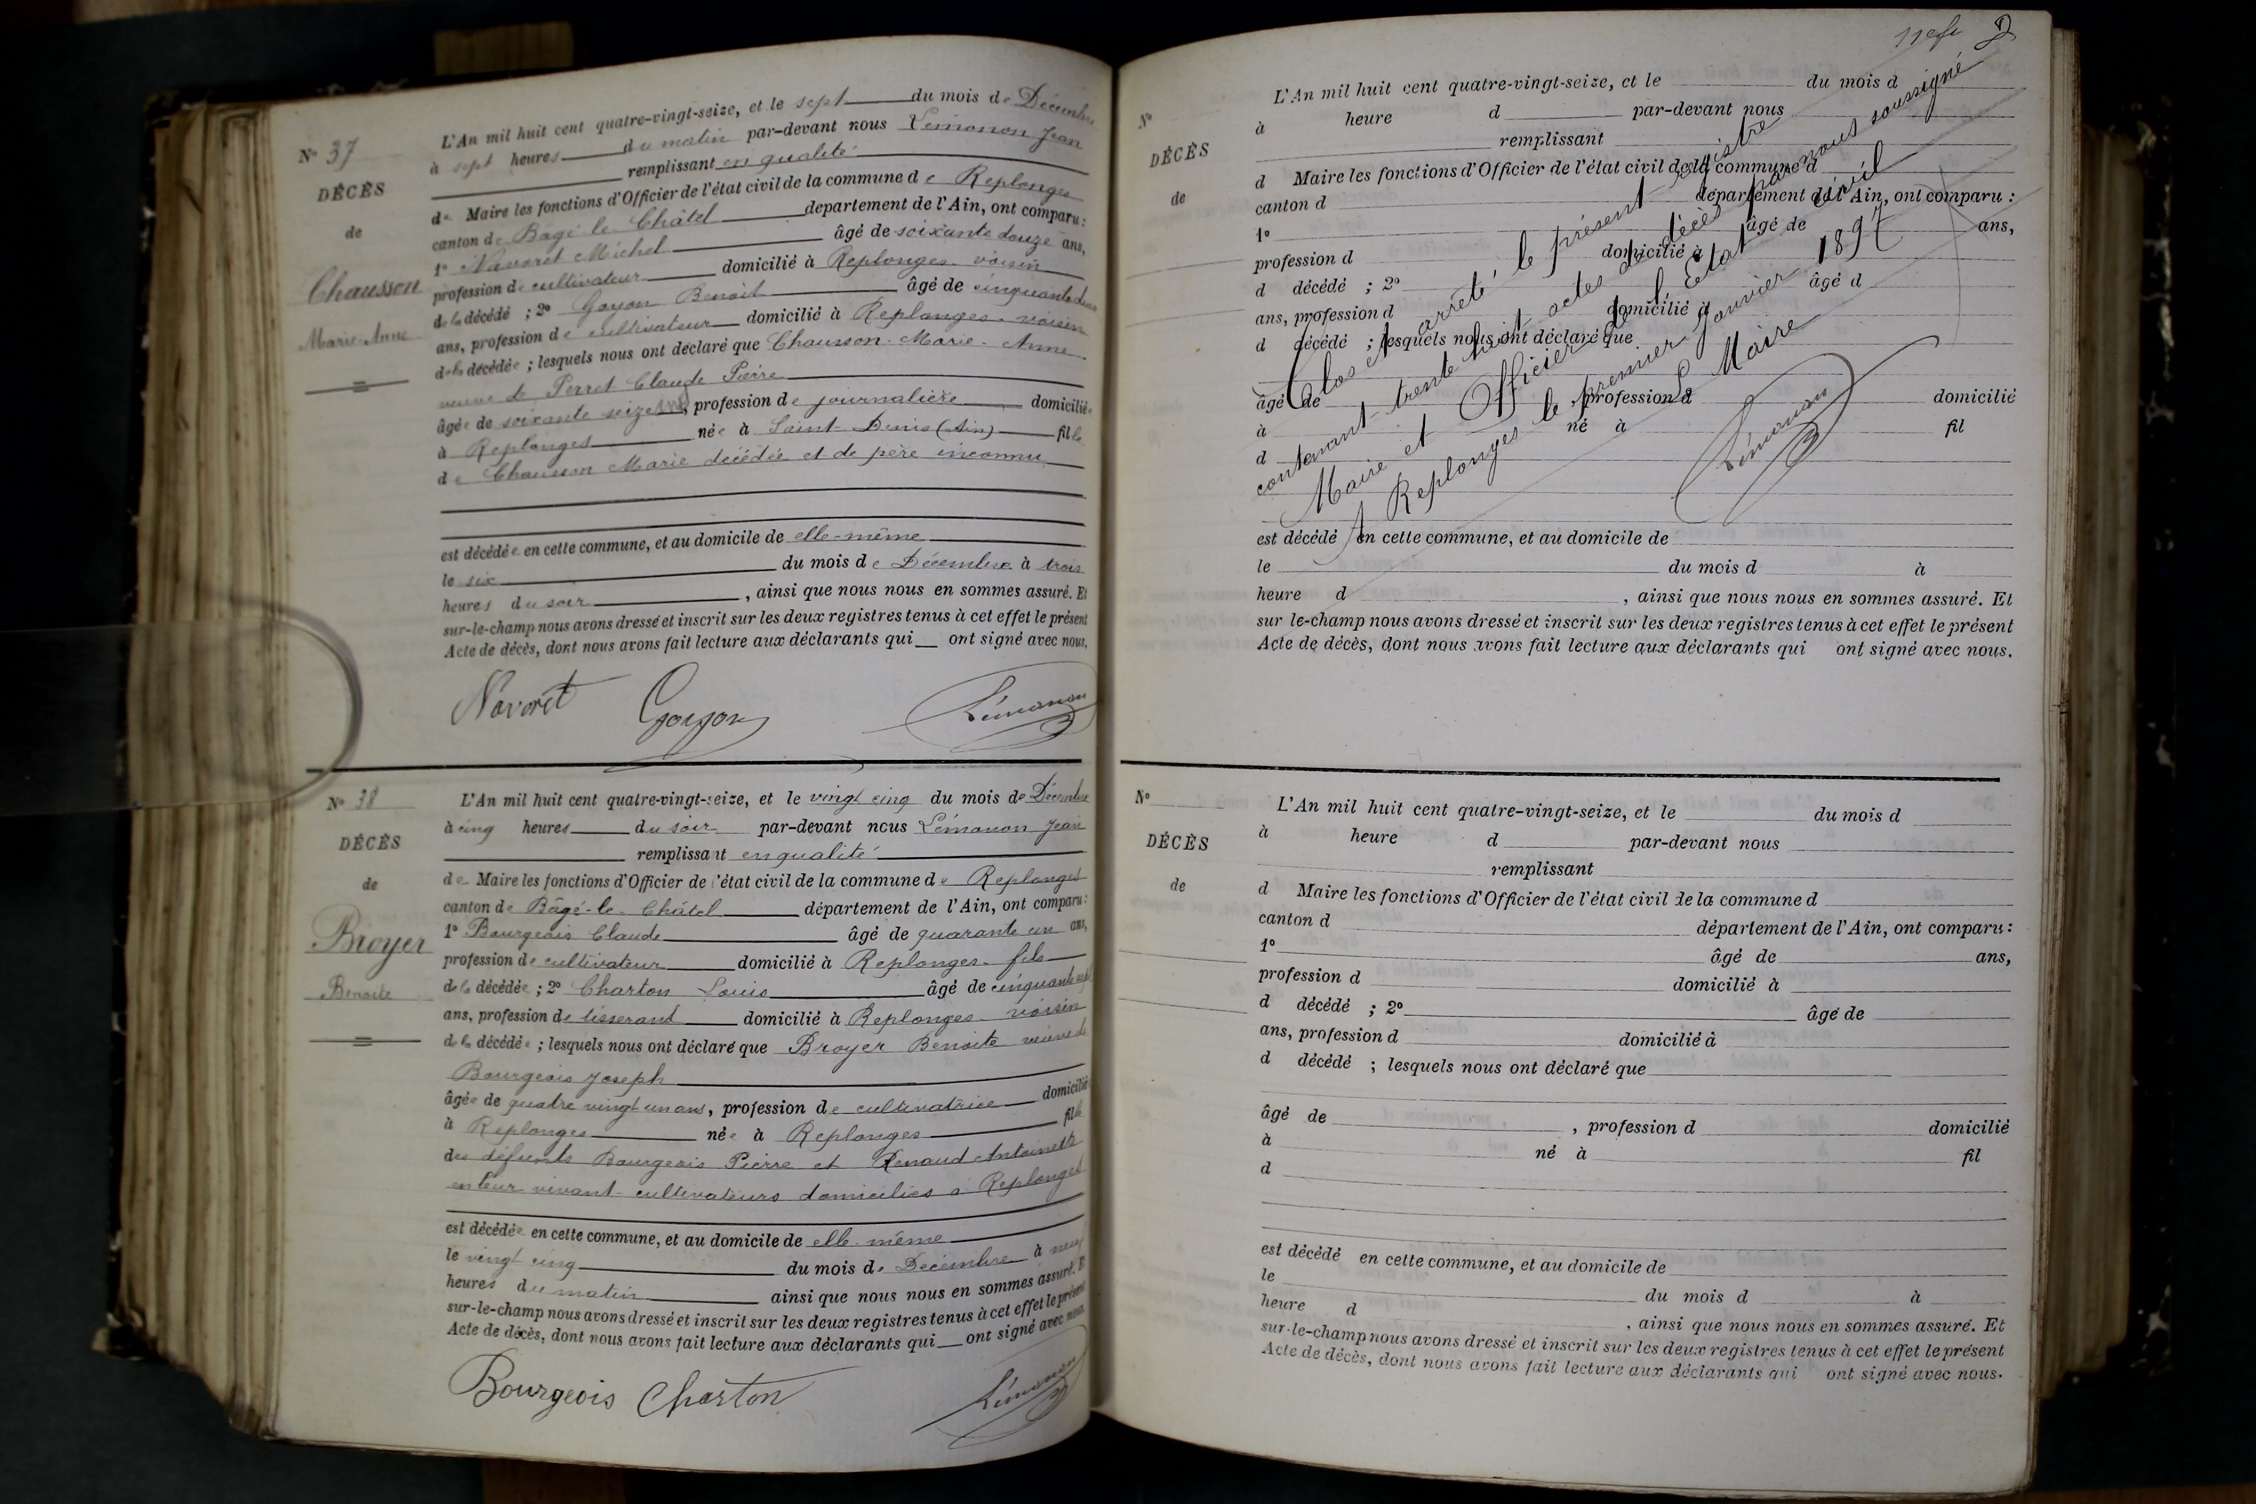 N° 37
DÉCÈS
de
Chausson
Marie-Anne
L'An mil huit cent quatre-vingt-seize, et le sept du mois de Décembre
à sept heures du matin par-devant nous Lémonon Jean
remplissant en qualité
de Maire les fonctions d'Officier de l'état civil de la commune de Replonges
canton de Bagé le Châtel département de l'Ain, ont comparu :
1° Navoret Michel âgé de soixante douze ans,
profession de cultivateur domicilié à Replonges voisin
de la décédé ; 2° Goyon Benoit âgé de cinquante deux
ans, profession de cultivateur domicilié à Replonges voisin
de la décédée ; lesquels nous ont déclaré que Chausson Marie-Anne
veuve de Perret Claude Pierre
âgée de soixante seize ans, profession de journalière domiciliée
à Replonges née à Saint Denis (Ain) fille
de Chausson Marie décédée et de père inconnu
est décédée en cette commune, et au domicile de elle-même
le six du mois de Décembre à trois
heures du soir, ainsi que nous nous en sommes assuré. Et
sur-le-champ nous avons dressé et inscrit sur les deux registres tenus à cet effet le présent
Acte de décès, dont nous avons fait lecture aux déclarants qui ont signé avec nous,
Navoret Goyon Lémonon
N° 38
DÉCÈS
de
Broyer
Benoite
L'An mil huit cent quatre-vingt-seize, et le vingt cinq du mois de Décembre
à cinq heures du soir par-devant nous Lémonon Jean
remplissant en qualité
de Maire les fonctions d'Officier de l'état civil de la commune de Replonges
canton de Bâgé-le-Châtel département de l'Ain, ont comparu :
1° Bourgeois Claude âgé de quarante un ans,
profession de cultivateur domicilié à Replonges fils
de la décédée ; 2° Charton Louis âgé de cinquante
ans, profession de tisserand domicilié à Replonges voisin
de la décédée ; lesquels nous ont déclaré que Broyer Benoite veuve de
Bourgeois Joseph
âgée de quatre vingt un ans, profession de cultivatrice domicilié
à Replonges née à Replonges fille
des défunts Bourgeois Pierre et Renaud Antoinette
en leur vivant cultivateurs domiciliés à Replonges
est décédée en cette commune, et au domicile de elle-même
le vingt cinq du mois de Décembre à neuf
heures du matin ainsi que nous nous en sommes assuré. Et
sur-le-champ nous avons dressé et inscrit sur les deux registres tenus à cet effet le présent
Acte de décès, dont nous avons fait lecture aux déclarants qui ont signé avec nous.
Bourgeois Charton Lémonon
N°
DÉCÈS
de
L'An mil huit cent quatre-vingt-seize, et le du mois d
à heure d par-devant nous
remplissant
d Maire les fonctions d'Officier de l'état civil de la commune d
canton d département de l'Ain, ont comparu :
1° âgé de ans,
profession d domicilié à
d décédé ; 2° âgé d
ans, profession d domicilié à
d décédé ; lesquels nous ont déclaré que
âgé de profession d domicilié
à né à fil
d
est décédé en cette commune, et au domicile de
le du mois d à
heure d , ainsi que nous nous en sommes assuré. Et
sur le-champ nous avons dressé et inscrit sur les deux registres tenus à cet effet le présent
Acte de décès, dont nous avons fait lecture aux déclarants qui ont signé avec nous.
Clos et arrêté le présent registre
contenant trente huit actes de décès par nous soussigné
Maire et Officier de l'Etat civil
A Replonges le premier Janvier 1897
Le Maire
Lémonon
N°
DÉCÈS
de
L'An mil huit cent quatre-vingt-seize, et le du mois d
à heure d par-devant nous
remplissant
d Maire les fonctions d'Officier de l'état civil de la commune d
canton d département de l'Ain, ont comparu :
1° âgé de ans,
profession d domicilié à
d décédé ; 2° âgé de
ans, profession d domicilié à
d décédé ; lesquels nous ont déclaré que
âgé de , profession d domicilié
à né à fil
d
est décédé en cette commune, et au domicile de
le du mois d à
heure d , ainsi que nous nous en sommes assuré. Et
sur-le-champ nous avons dressé et inscrit sur les deux registres tenus à cet effet le présent
Acte de décès, dont nous avons fait lecture aux déclarants qui ont signé avec nous.